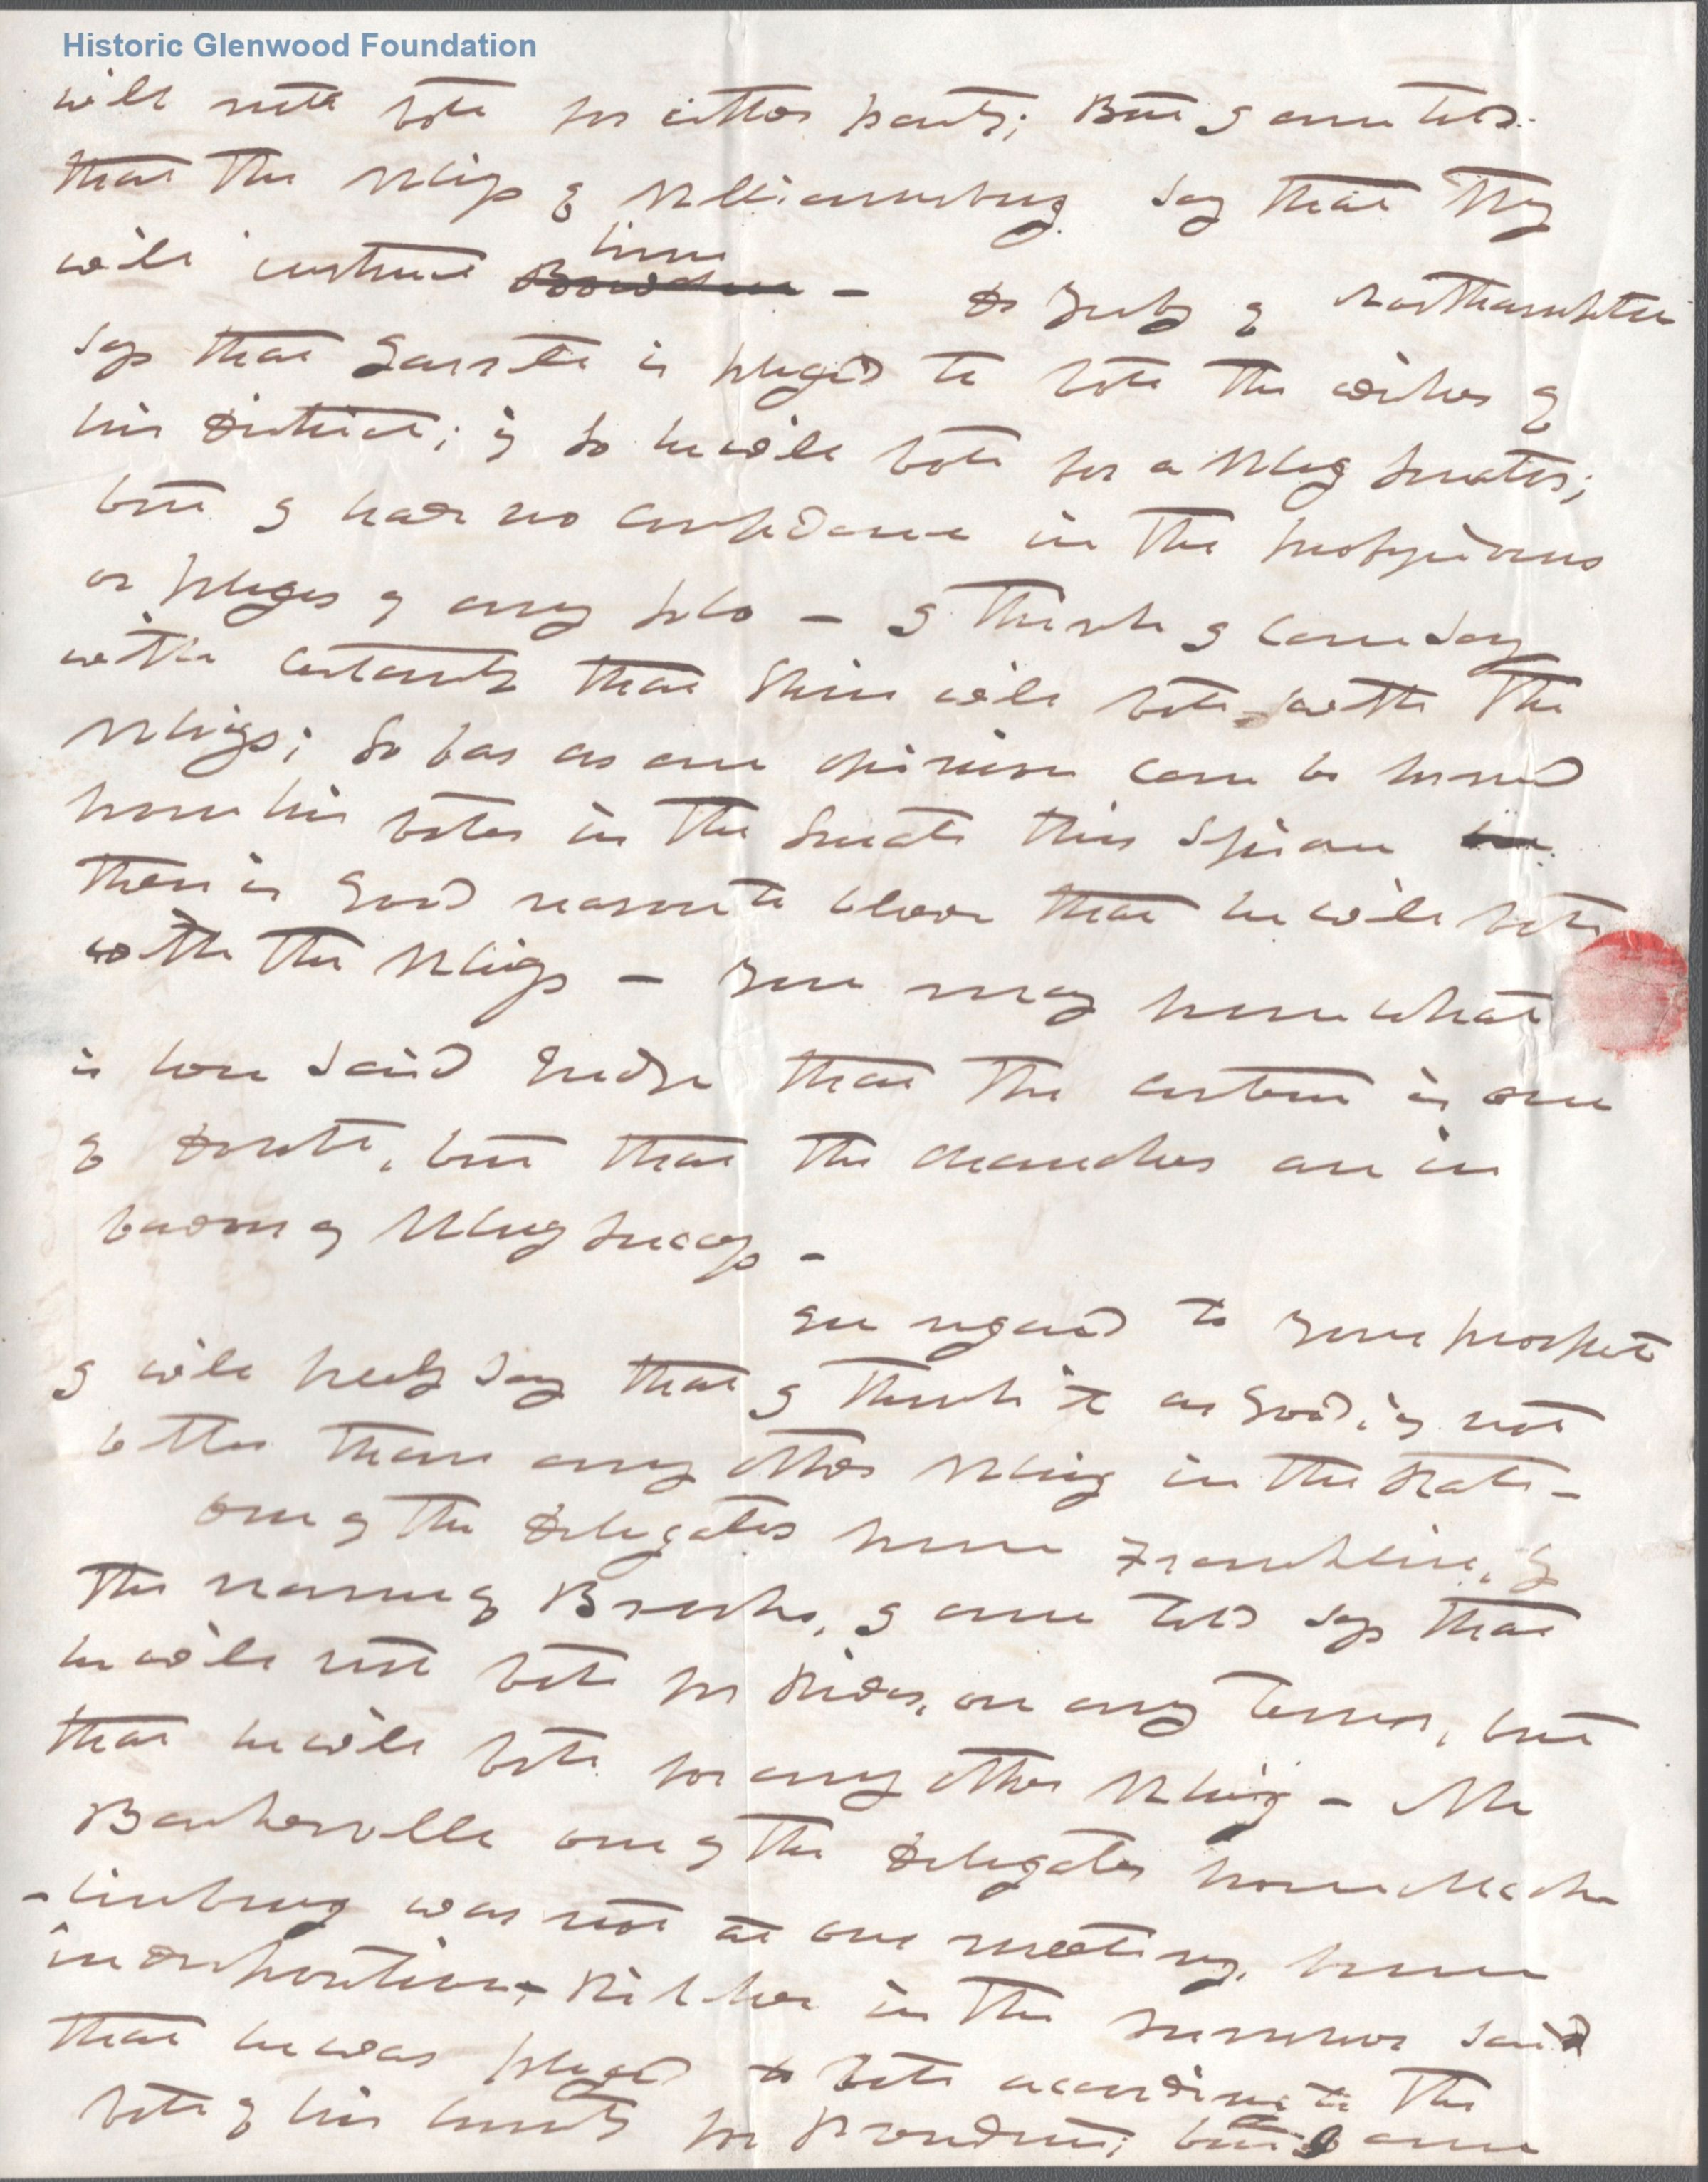 Historic Glenwood Foundation
will not vote for either party; But I am told
that the Whigs of Williamsburg say that they
will instruct him
Bowden - of Northampton
says that is pleged to vote the wishes of
his district; if so he will vote for a Whig Senator;
but I have no confidence in the professions
or pleges of any loco - I think I can say
with certainty that will vote with the
Whigs; so far as an opinion can be formed
from his votes in the Senate this
there is good reason to beleve that he will vote
with the Whigs - You may from what
is here said Judge that the contest is one
of doubt, but that the chanches are in
favour of Whig success -
In regard to your prospects
I will freely say that I think it as good, if not
better than any other Whig in the State -
One of the delegates from Franklin, of
the name of Brooks, I am told says that
he will not vote for Rives, on any terms, but
that he will vote for any other Whig - Mr
Baskerville one of the delegates from Meck
-linburg was not at our meeting, from
indisposition, in the summer said
that he was pleged to vote according to the
vote of his county for President; but I am